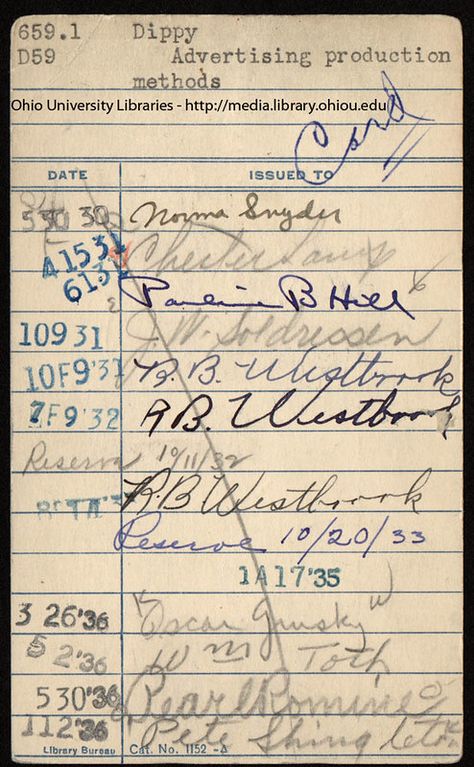 659.1 Dippy
D59 Advertising production
methods
Ohio University Libraries - http://media.library.ohiou.edu
Card
DATE ISSUED TO
530 30 Norma Snyder
41531 Chester
6131 Pauline B Hill
10931 J. W. Soldressen
10F9'31 R. B. Westbrook
7F9'32 R B. Westbrook
Reserve 10/11/32
R B Westbrook
Reserve 10/20/33
1A17'35
3 26'36 Oscar Grusky
5 2'36 Wm Toth
530'36 Pearl Romine
112'36 Pete Shingleton
Library Bureau Cat. No. 1152